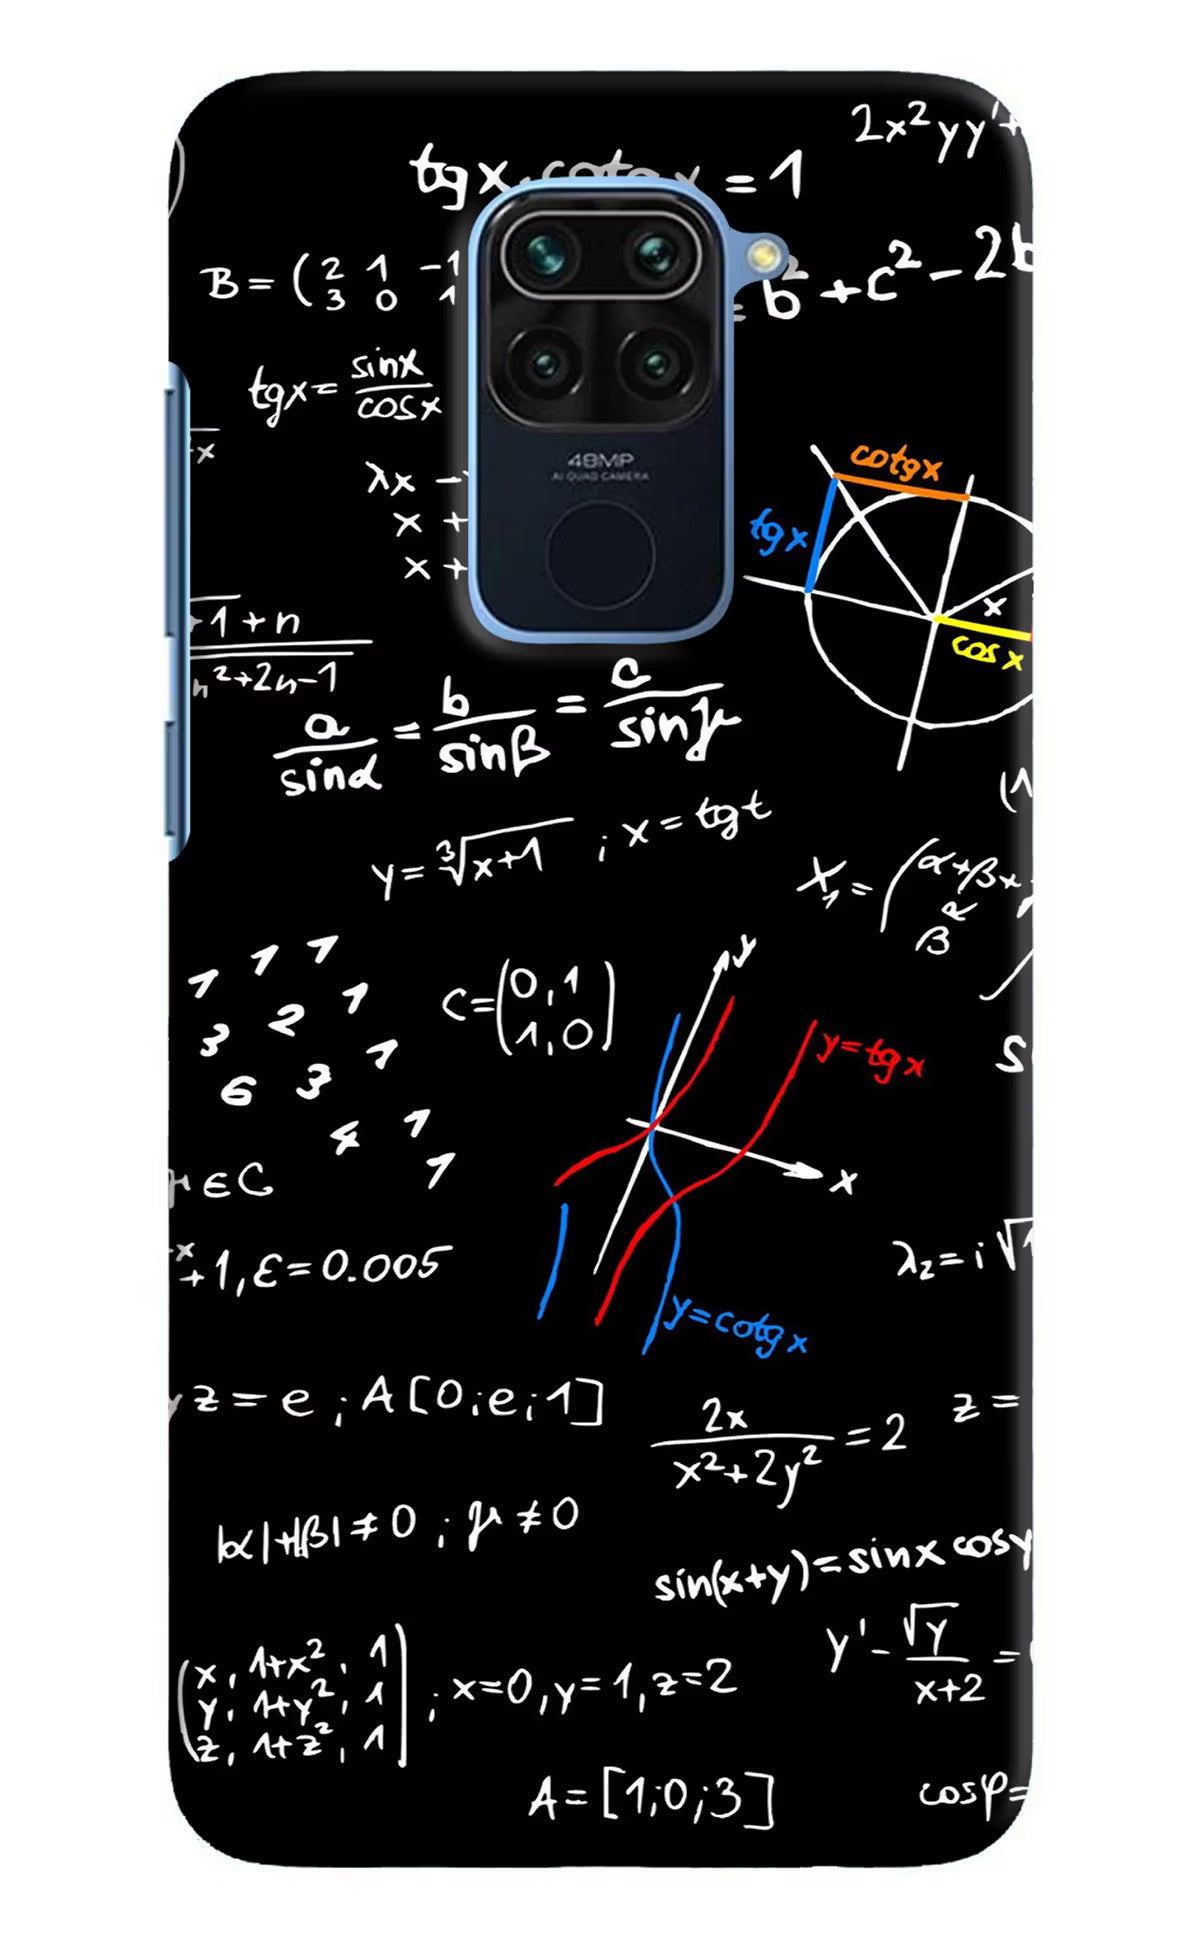 2x²yy'+
tgx · cotgx = 1
B = ( 2 1 -1
3 0 1
= b² + c² - 2b
tgx = sinx / cosx
x
48MP
AI QUAD CAMERA
λx -
x +
x +
cotgx
tgx
x
cosx
+1 + n
n²+2n-1
a / sinα = b / sinβ = c / sinγ
y = ³√x+1 ; x = tgt
X₁ = ( α+βx
β
1 1 1
3 2 1
6 3 1
4 1
1
C = ( 0, 1
1, 0 )
y
y=tgx
x
S
∈ C
x
+1, ε = 0.005
λ₂ = i √
y=cotgx
z = e ; A[0;e;1]
2x / x²+2y² = 2
z =
|α|+|β| ≠ 0 ; μ ≠ 0
sin(x+y) = sinx cosy
y' - √y / x+2 =
( x, 1+x², 1
y, 1+y², 1
z, 1+z², 1 ) ; x=0, y=1, z=2
A = [1;0;3]
cosφ=